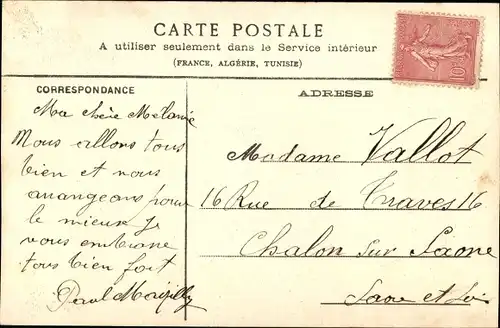 CARTE POSTALE
A utiliser seulement dans le Service intérieur
(FRANCE, ALGÉRIE, TUNISIE)
CORRESPONDANCE
ADRESSE
Ma chère Mélanie
Nous allons tous
bien et nous
arrangeons pour
le mieux Je
vous embrasse
tous bien fort
Paul
Madame Vallot
16 Rue de Traves 16
Chalon sur Saone
Saone et Loi
10